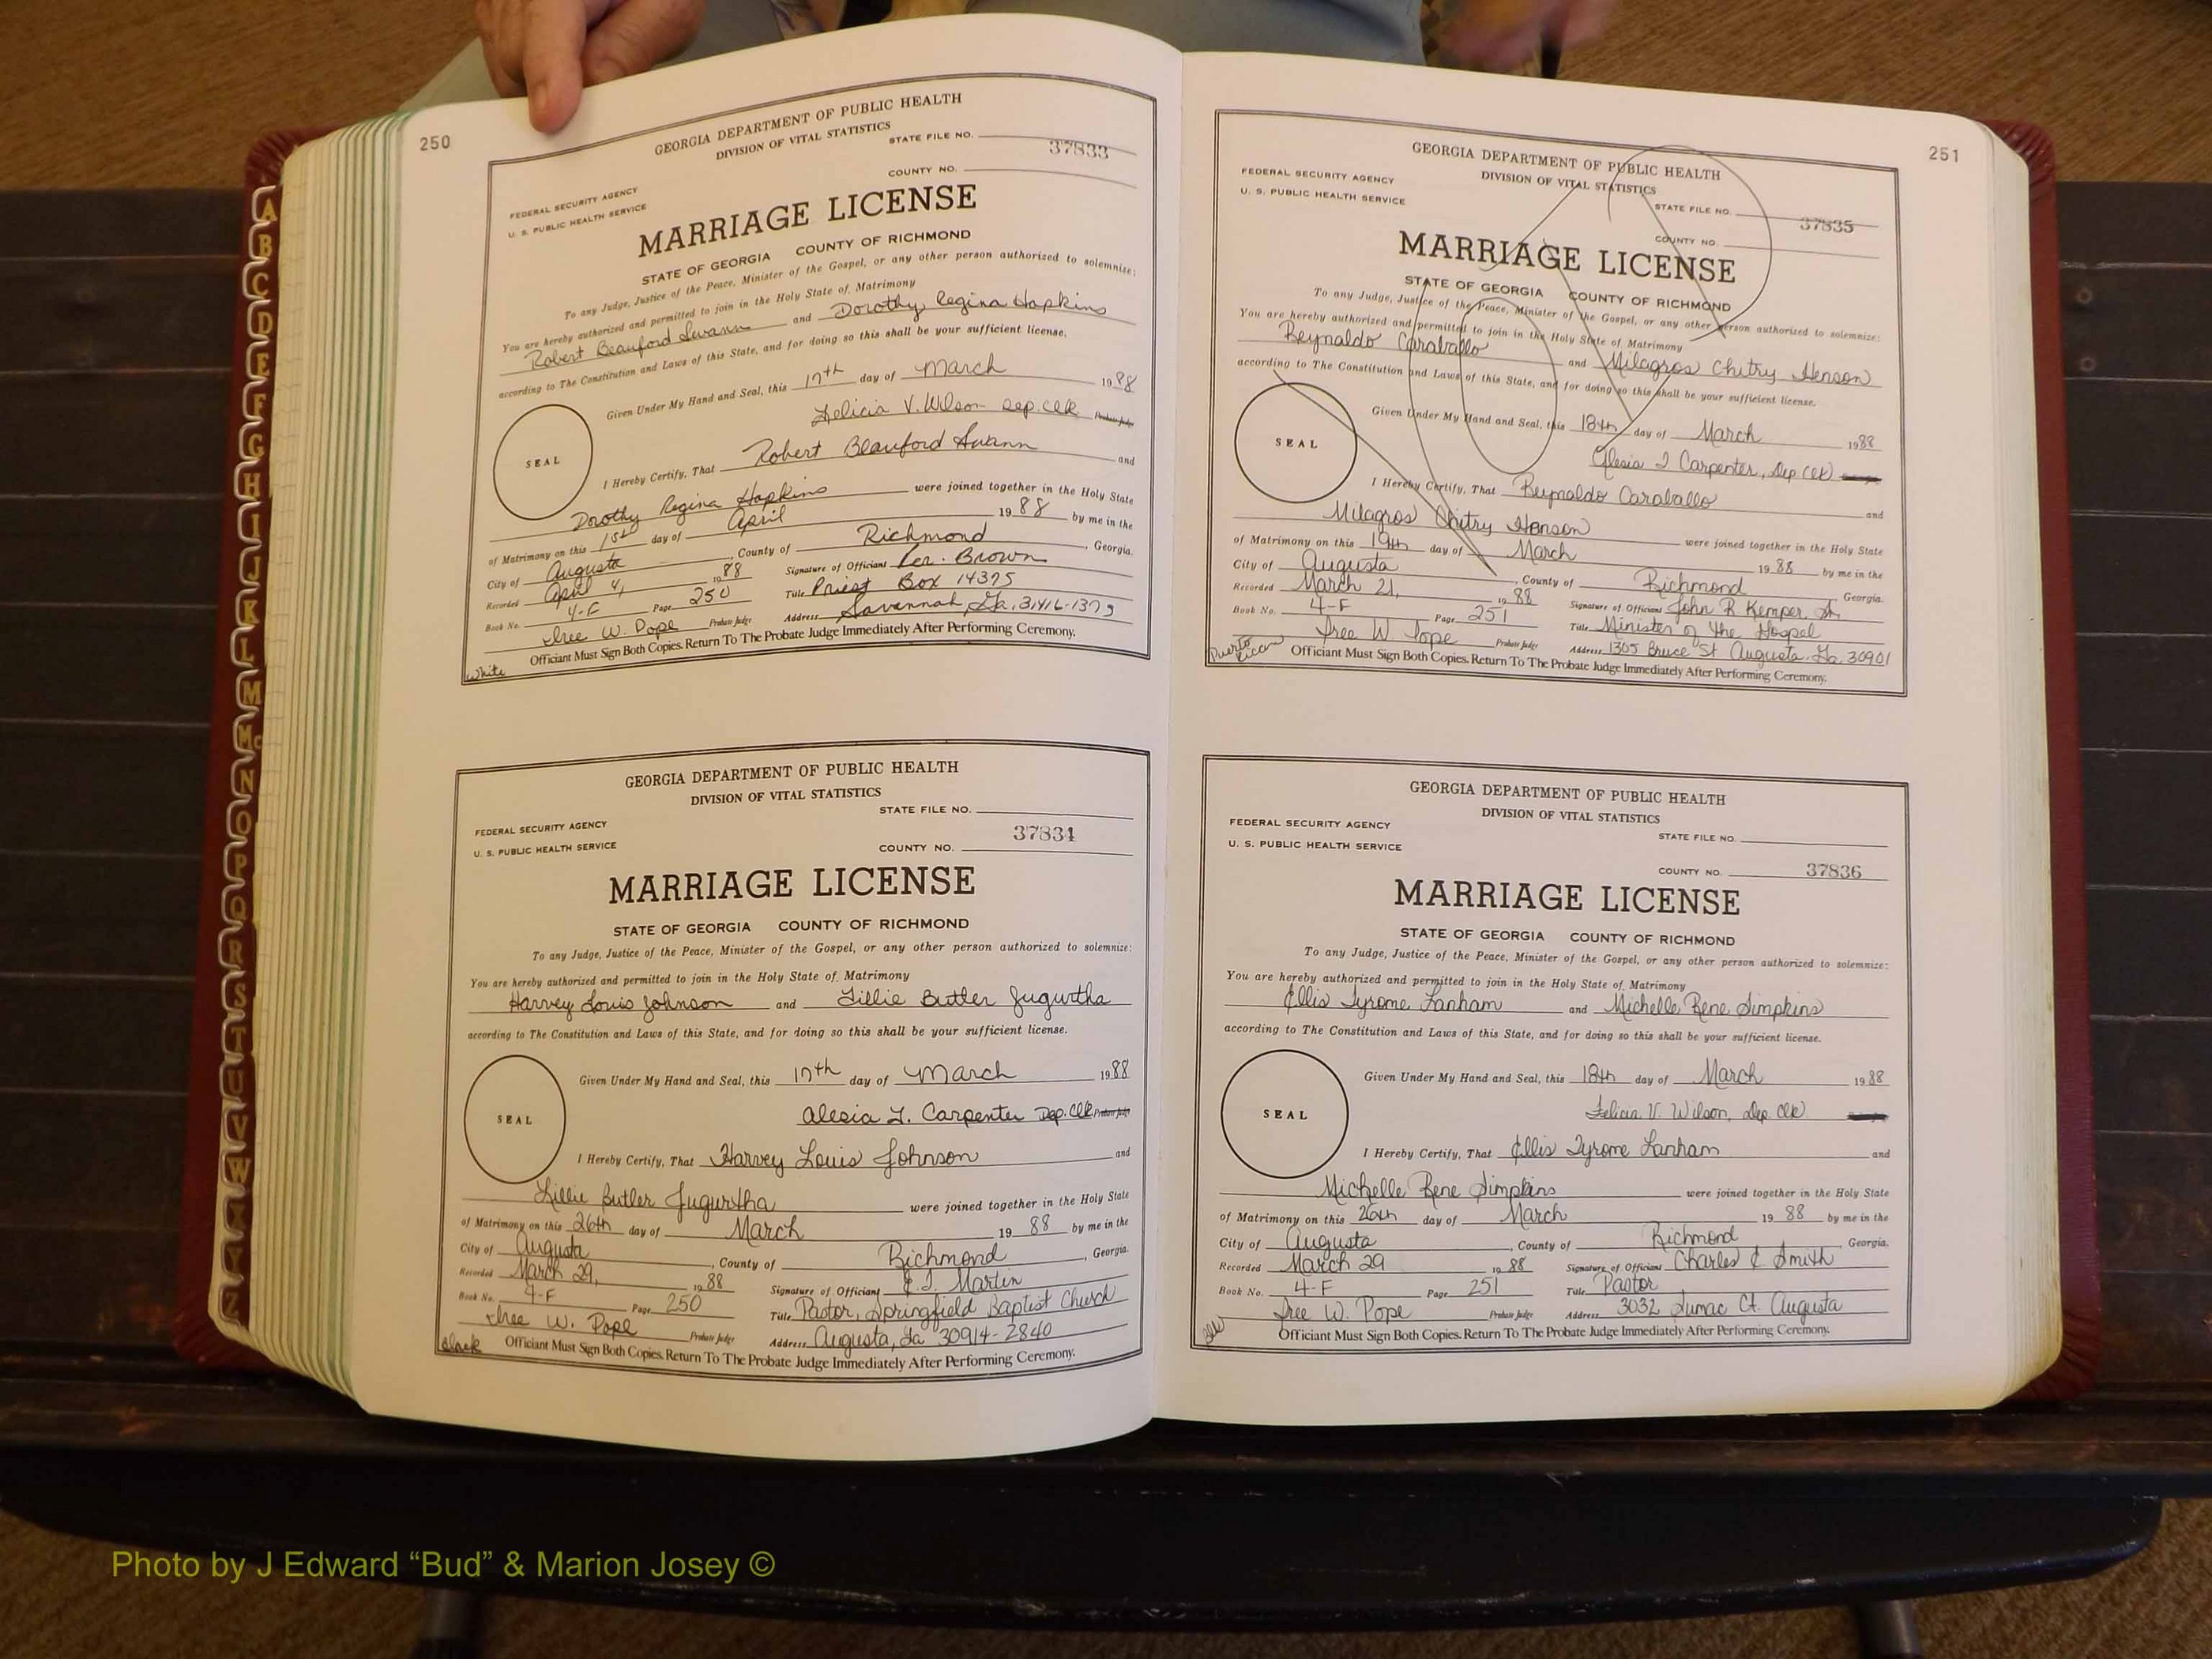 250
GEORGIA DEPARTMENT OF PUBLIC HEALTH
DIVISION OF VITAL STATISTICS
STATE FILE NO.
37833
COUNTY NO.
FEDERAL SECURITY AGENCY
U. S. PUBLIC HEALTH SERVICE
MARRIAGE LICENSE
STATE OF GEORGIA COUNTY OF RICHMOND
To any Judge, Justice of the Peace, Minister of the Gospel, or any other person authorized to solemnize:
You are hereby authorized and permitted to join in the Holy State of Matrimony
Robert Beauford Swann and Dorothy Regina Hopkins
according to The Constitution and Laws of this State, and for doing so this shall be your sufficient license.
Given Under My Hand and Seal, this 17th day of March 1988
Felicia V. Wilson Dep. Clk Probate Judge
SEAL
I Hereby Certify, That Robert Beauford Swann and
Dorothy Regina Hopkins were joined together in the Holy State
of Matrimony on this 1st day of April 1988 by me in the
City of Augusta, County of Richmond, Georgia.
Recorded April 4, 1988 Signature of Officiant Brown
Book No. 4-F Page 250 Title Priest Box 14375
Iree W. Pope Probate Judge Address Savannah, Ga. 31416-1375
Officiant Must Sign Both Copies. Return To The Probate Judge Immediately After Performing Ceremony.
White
GEORGIA DEPARTMENT OF PUBLIC HEALTH
DIVISION OF VITAL STATISTICS
STATE FILE NO.
FEDERAL SECURITY AGENCY
37834
U. S. PUBLIC HEALTH SERVICE
COUNTY NO.
MARRIAGE LICENSE
STATE OF GEORGIA COUNTY OF RICHMOND
To any Judge, Justice of the Peace, Minister of the Gospel, or any other person authorized to solemnize:
You are hereby authorized and permitted to join in the Holy State of Matrimony
Harvey Louis Johnson and Lillie Butler Jugurtha
according to The Constitution and Laws of this State, and for doing so this shall be your sufficient license.
Given Under My Hand and Seal, this 17th day of March 1988
Alesia L. Carpenter Dep. Clk Probate Judge
SEAL
I Hereby Certify, That Harvey Louis Johnson and
Lillie Butler Jugurtha were joined together in the Holy State
of Matrimony on this 26th day of March 1988 by me in the
City of Augusta, County of Richmond, Georgia.
Recorded March 29, 1988 Signature of Officiant E. T. Martin
Book No. 4-F Page 250 Title Pastor, Springfield Baptist Church
Iree W. Pope Probate Judge Address Augusta, Ga 30914-2840
Officiant Must Sign Both Copies. Return To The Probate Judge Immediately After Performing Ceremony.
Black
251
GEORGIA DEPARTMENT OF PUBLIC HEALTH
DIVISION OF VITAL STATISTICS
FEDERAL SECURITY AGENCY
U. S. PUBLIC HEALTH SERVICE
STATE FILE NO.
37835
COUNTY NO.
MARRIAGE LICENSE
STATE OF GEORGIA COUNTY OF RICHMOND
To any Judge, Justice of the Peace, Minister of the Gospel, or any other person authorized to solemnize:
You are hereby authorized and permitted to join in the Holy State of Matrimony
Reynaldo Caraballo and Milagros Chitry Henson
according to The Constitution and Laws of this State, and for doing so this shall be your sufficient license.
Given Under My Hand and Seal, this 18th day of March 1988
Alesia L Carpenter, Dep Clk
SEAL
I Hereby Certify, That Reynaldo Caraballo and
Milagros Chitry Henson were joined together in the Holy State
of Matrimony on this 19th day of March 1988 by me in the
City of Augusta, County of Richmond Georgia.
Recorded March 21, 1988 Signature of Officiant John R Kemper, Sr.
Book No. 4-F Page 251 Title Minister of the Gospel
Iree W. Pope Probate Judge Address 1305 Bruce St Augusta, Ga. 30901
Officiant Must Sign Both Copies. Return To The Probate Judge Immediately After Performing Ceremony.
Puerto Rican
GEORGIA DEPARTMENT OF PUBLIC HEALTH
DIVISION OF VITAL STATISTICS
FEDERAL SECURITY AGENCY
STATE FILE NO.
U. S. PUBLIC HEALTH SERVICE
COUNTY NO. 37836
MARRIAGE LICENSE
STATE OF GEORGIA COUNTY OF RICHMOND
To any Judge, Justice of the Peace, Minister of the Gospel, or any other person authorized to solemnize:
You are hereby authorized and permitted to join in the Holy State of Matrimony
Ellis Tyrome Lanham and Michelle Rene Simpkins
according to The Constitution and Laws of this State, and for doing so this shall be your sufficient license.
Given Under My Hand and Seal, this 18th day of March 1988
Felicia V. Wilson, Dep Clk
SEAL
I Hereby Certify, That Ellis Tyrome Lanham and
Michelle Rene Simpkins were joined together in the Holy State
of Matrimony on this 26th day of March 1988 by me in the
City of Augusta, County of Richmond, Georgia.
Recorded March 29 1988 Signature of Officiant Charles E Smith
Book No. 4-F Page 251 Title Pastor
Iree W. Pope Probate Judge Address 3032 Sumac Ct. Augusta
Officiant Must Sign Both Copies. Return To The Probate Judge Immediately After Performing Ceremony.
A
B
C
D
E
F
G
H
I
J
K
L
M
Mc
N
O
P
Q
R
S
T
U
V
W
X
Y
Z
Photo by J Edward “Bud” & Marion Josey ©